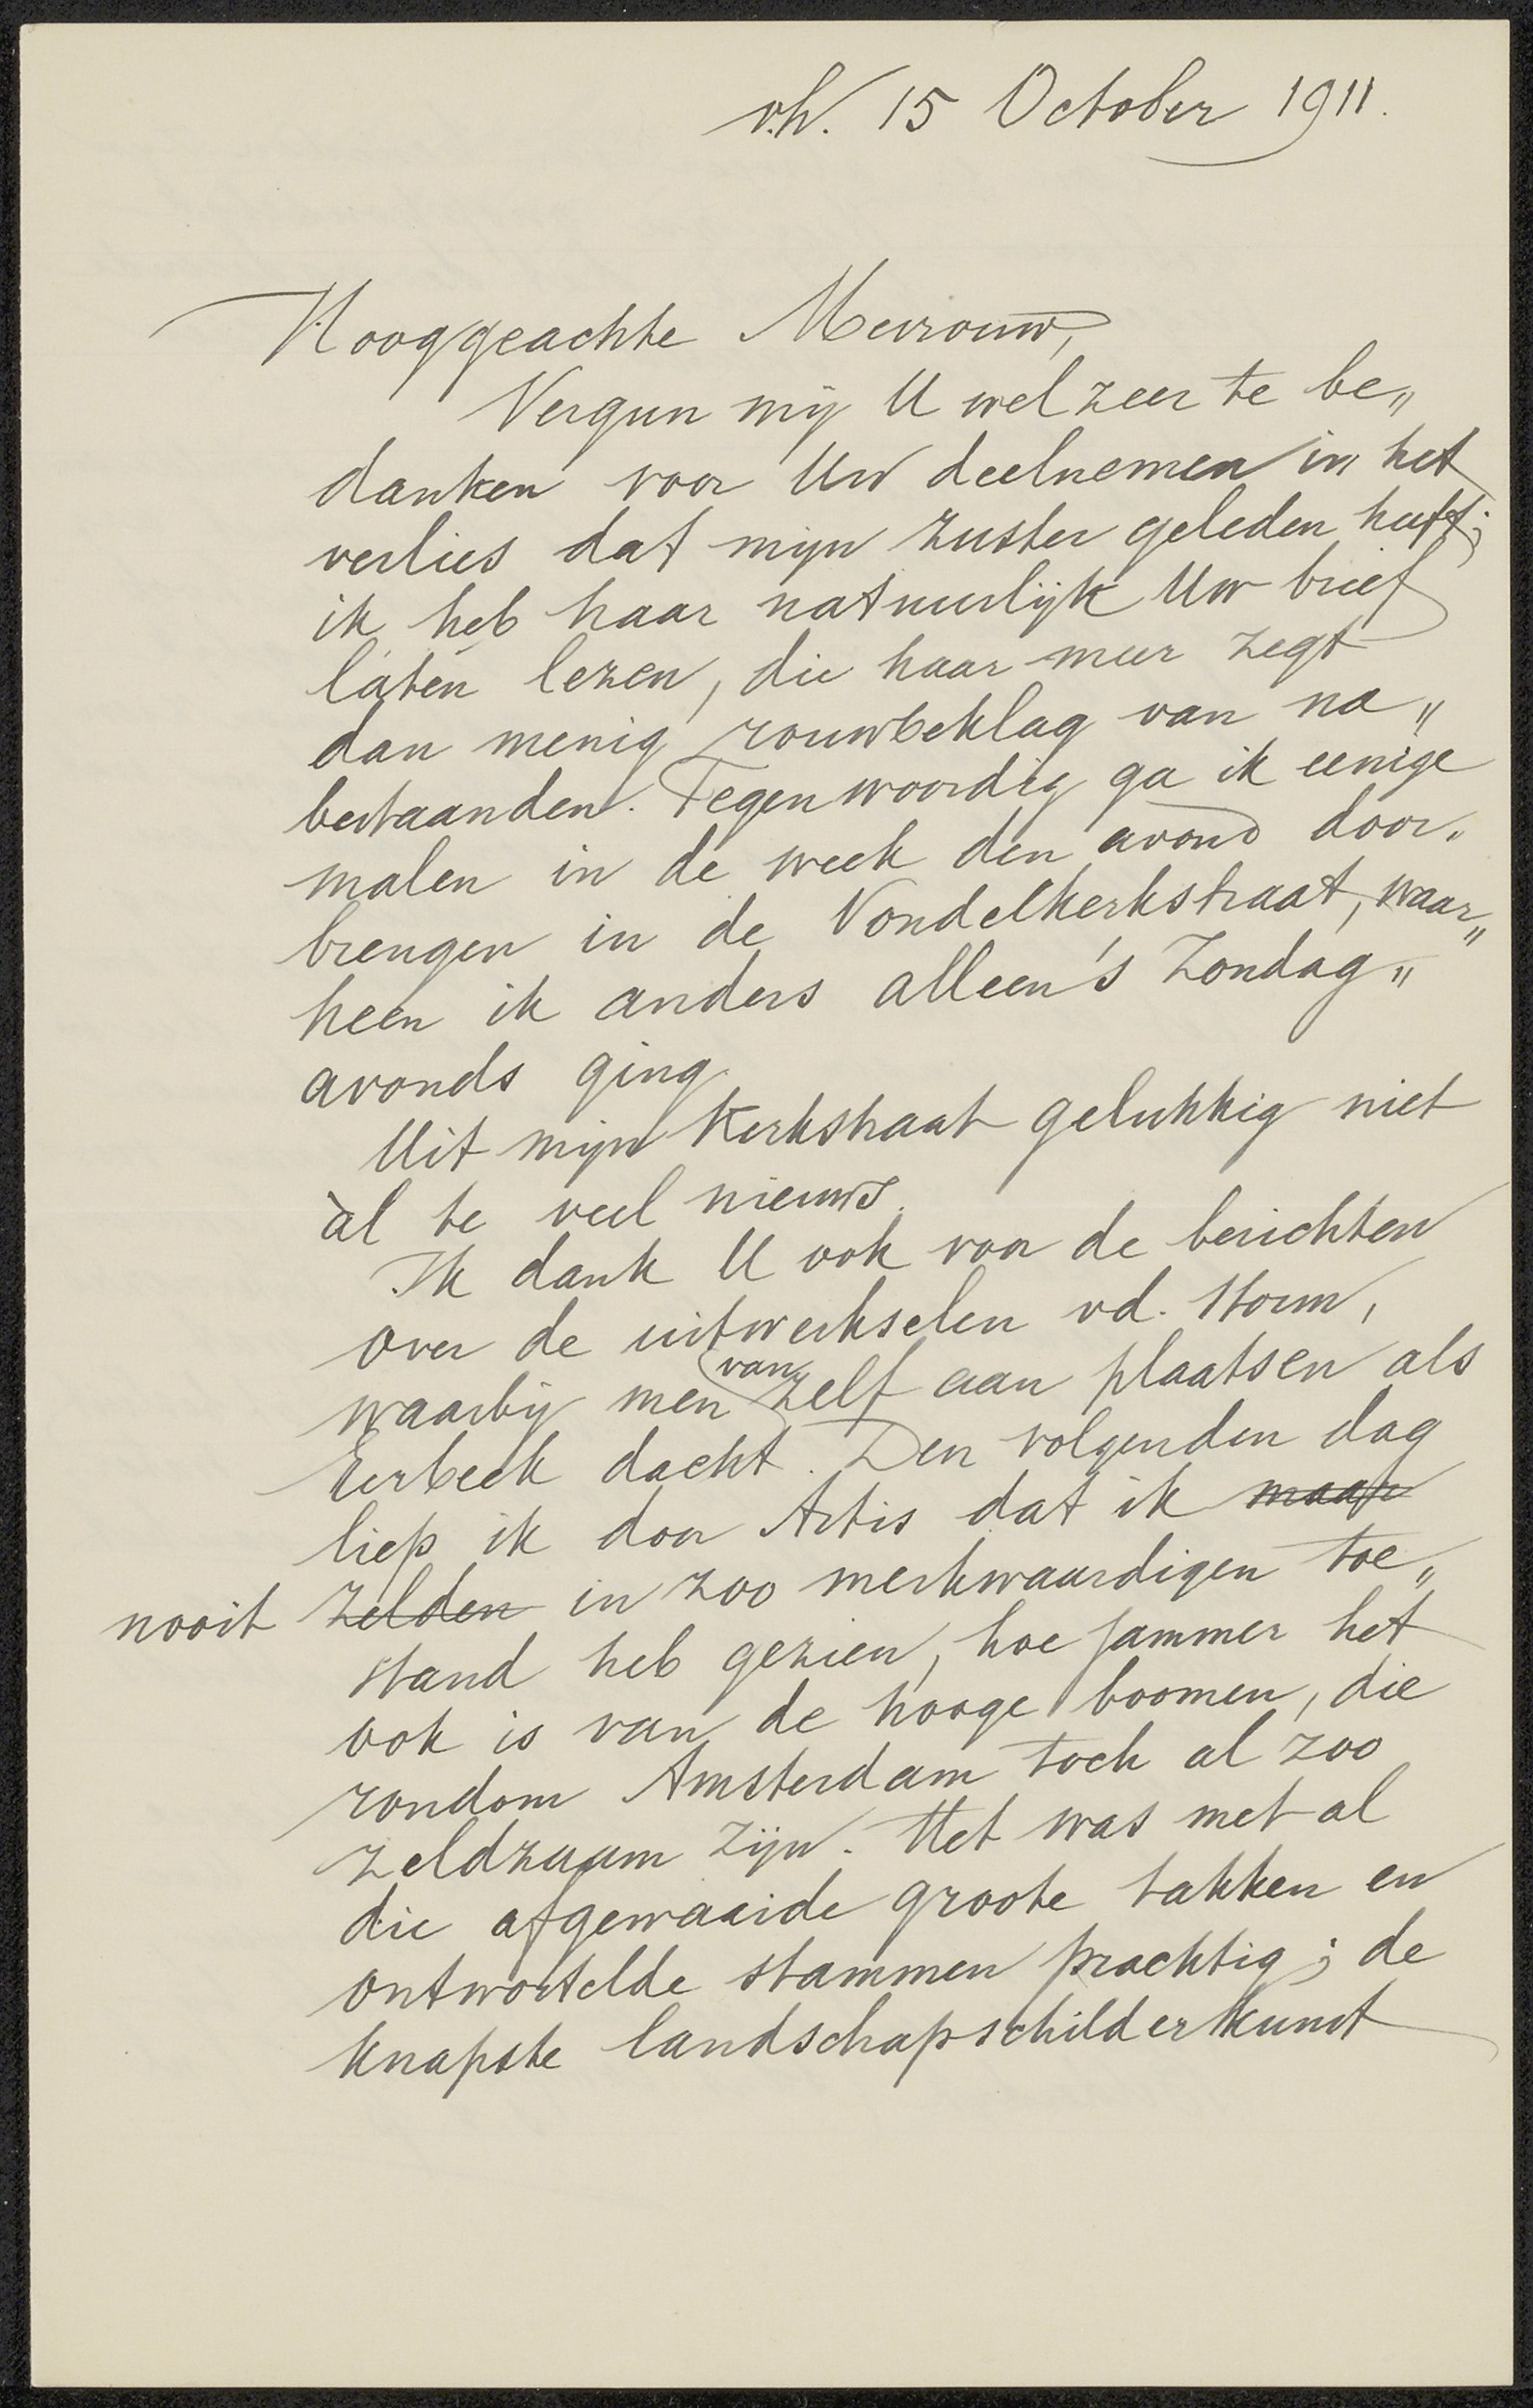 v.h. 15 October 1911.
Hooggeachte Mevrouw,
Vergun mij U wel zeer te be„
danken voor Uw deelnemen in het
verlies dat mijn zuster geleden heeft;
ik heb haar natuurlijk Uw brief
laten lezen, die haar meer zegt
dan menig rouwbeklag van na„
bestaanden. Tegenwoordig ga ik eenige
malen in de week den avond door„
brengen in de Vondelkerkstraat, waar„
heen ik anders alleen 's Zondag„
avonds ging.
Uit mijn Kerkstraat gelukkig niet
àl te veel nieuws.
Ik dank U ook voor de berichten
over de uitwerkselen vd. storm,
waarbij men van zelf aan plaatsen als
Eerbeek dacht. Den volgenden dag
liep ik door Artis dat ik maar
nooit zelden in zoo merkwaardigen toe„
stand heb gezien, hoe jammer het
ook is van de hooge boomen, die
rondom Amsterdam toch al zoo
zeldzaam zijn. Het was met al
die afgewaaide groote takken en
ontwortelde stammen prachtig; de
knapste landschapschilderkunst